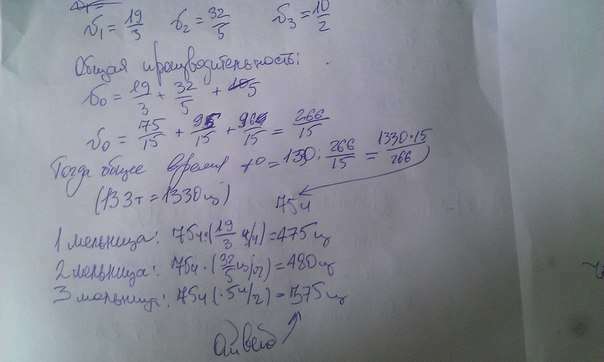 v₁ = 19/3  v₂ = 32/5  v₃ = 10/2
Общая производительность:
v₀ = 19/3 + 32/5 + 5
v₀ = 75/15 + 95/15 + 96/15 = 266/15
Тогда общее время t₀ = 1330 : 266/15 = 1330·15/266
(133т = 1330ц)  75ч
1 мельница: 75ч·(19/3 ц/ч) = 475ц
2 мельница: 75ч·(32/5 ц/ч) = 480ц
3 мельница: 75ч(·5ц/ч) = 375ц
Ответ